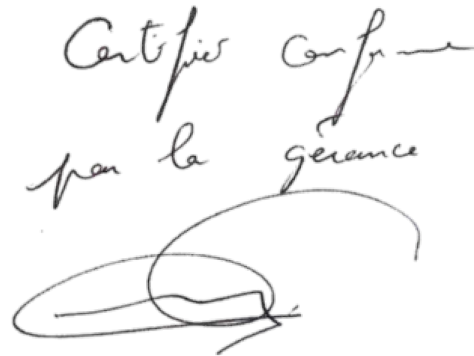 Certifiée conforme
par la gérance